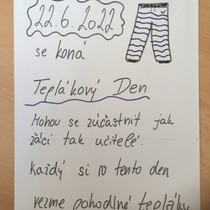 22.6.2022
se koná
Teplákový Den
Mohou se zúčastnit jak
žáci tak učitelé.
každý si v tento den
vezme pohodlné tepláky